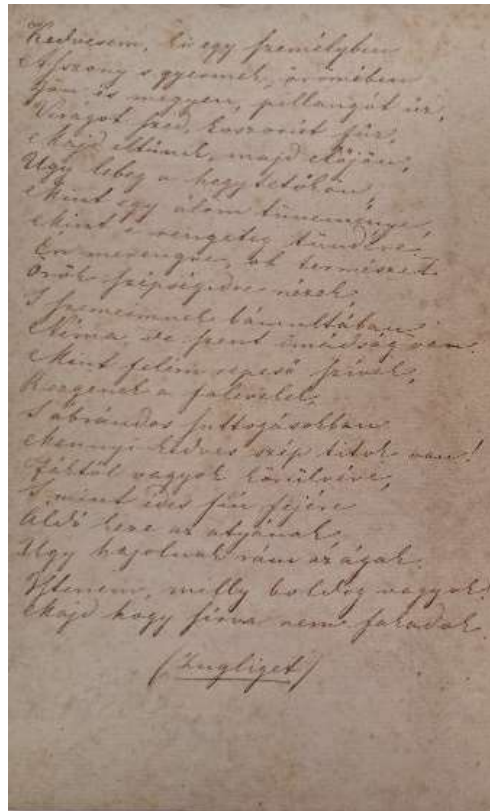 Kedvesem, ki egy személyben
Asszony s gyermek, örömében
Jön és megyen, pillangót űz,
Virágot szed, koszorút fűz,
Majd eltünik, majd előjön,
Ugy lebeg a hegytetőkön,
Mint egy álom tüneménye,
Mint e rengeteg tündére.
Én merengve, oh természet
Örök szépségidre nézek,
S szemeimnek bámultában
Néma, de szent imádság van.
Mint felém repeső szívek,
Rezgenek a falevelek,
S ábrándos suttogásokban
Mennyi kedves szép titok van!
Fáktól vagyok körülvéve,
S mint édes fia fejére
Áldó keze az atyának,
Ugy hajolnak rám az ágak.
Istenem, milly boldog vagyok!
Majd hogy sírva nem fakadok.
(Zugliget)